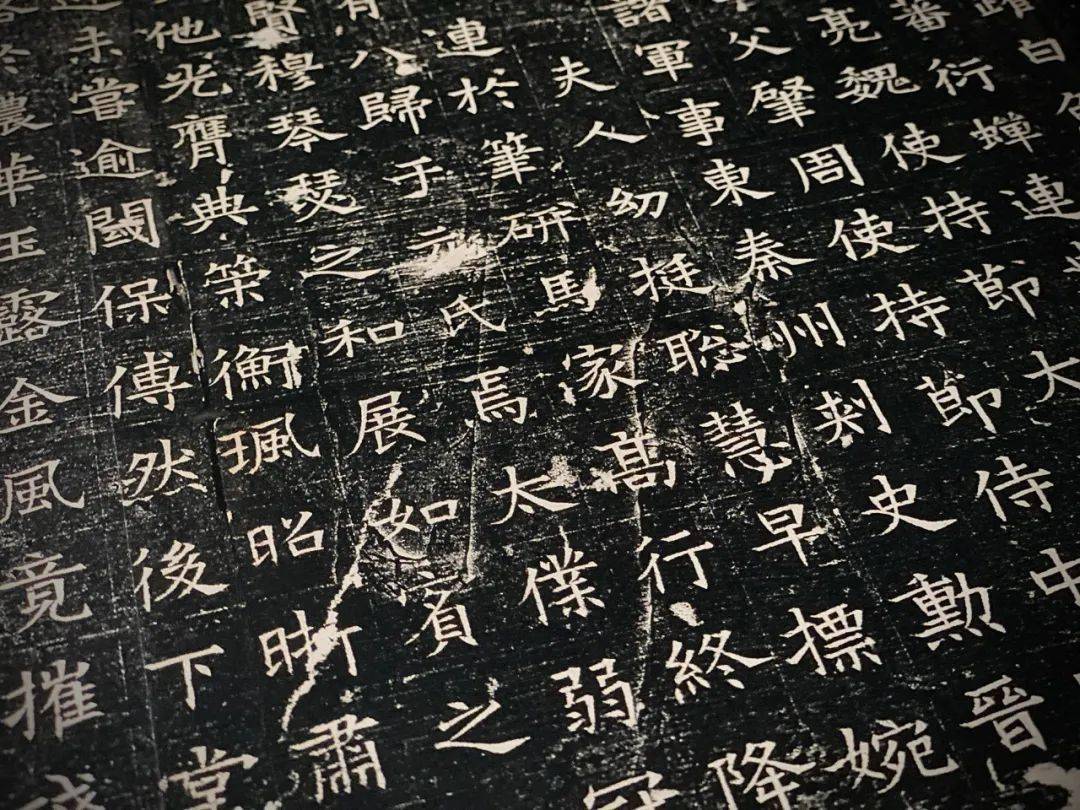 白
蕃衍蟬連
亮魏使持節大
父肇周使持節侍中
諸軍事東秦州刺史勳晉
夫人幼挺聰慧早標婉
連於筆研馬家高行終降
有八歸于元氏焉太僕弱冠
賢穆琴瑟之和展如賓之
他光膺典策衡珮昭晣肅
未嘗逾閾保傅然後下堂
農華玉露金風竟摧